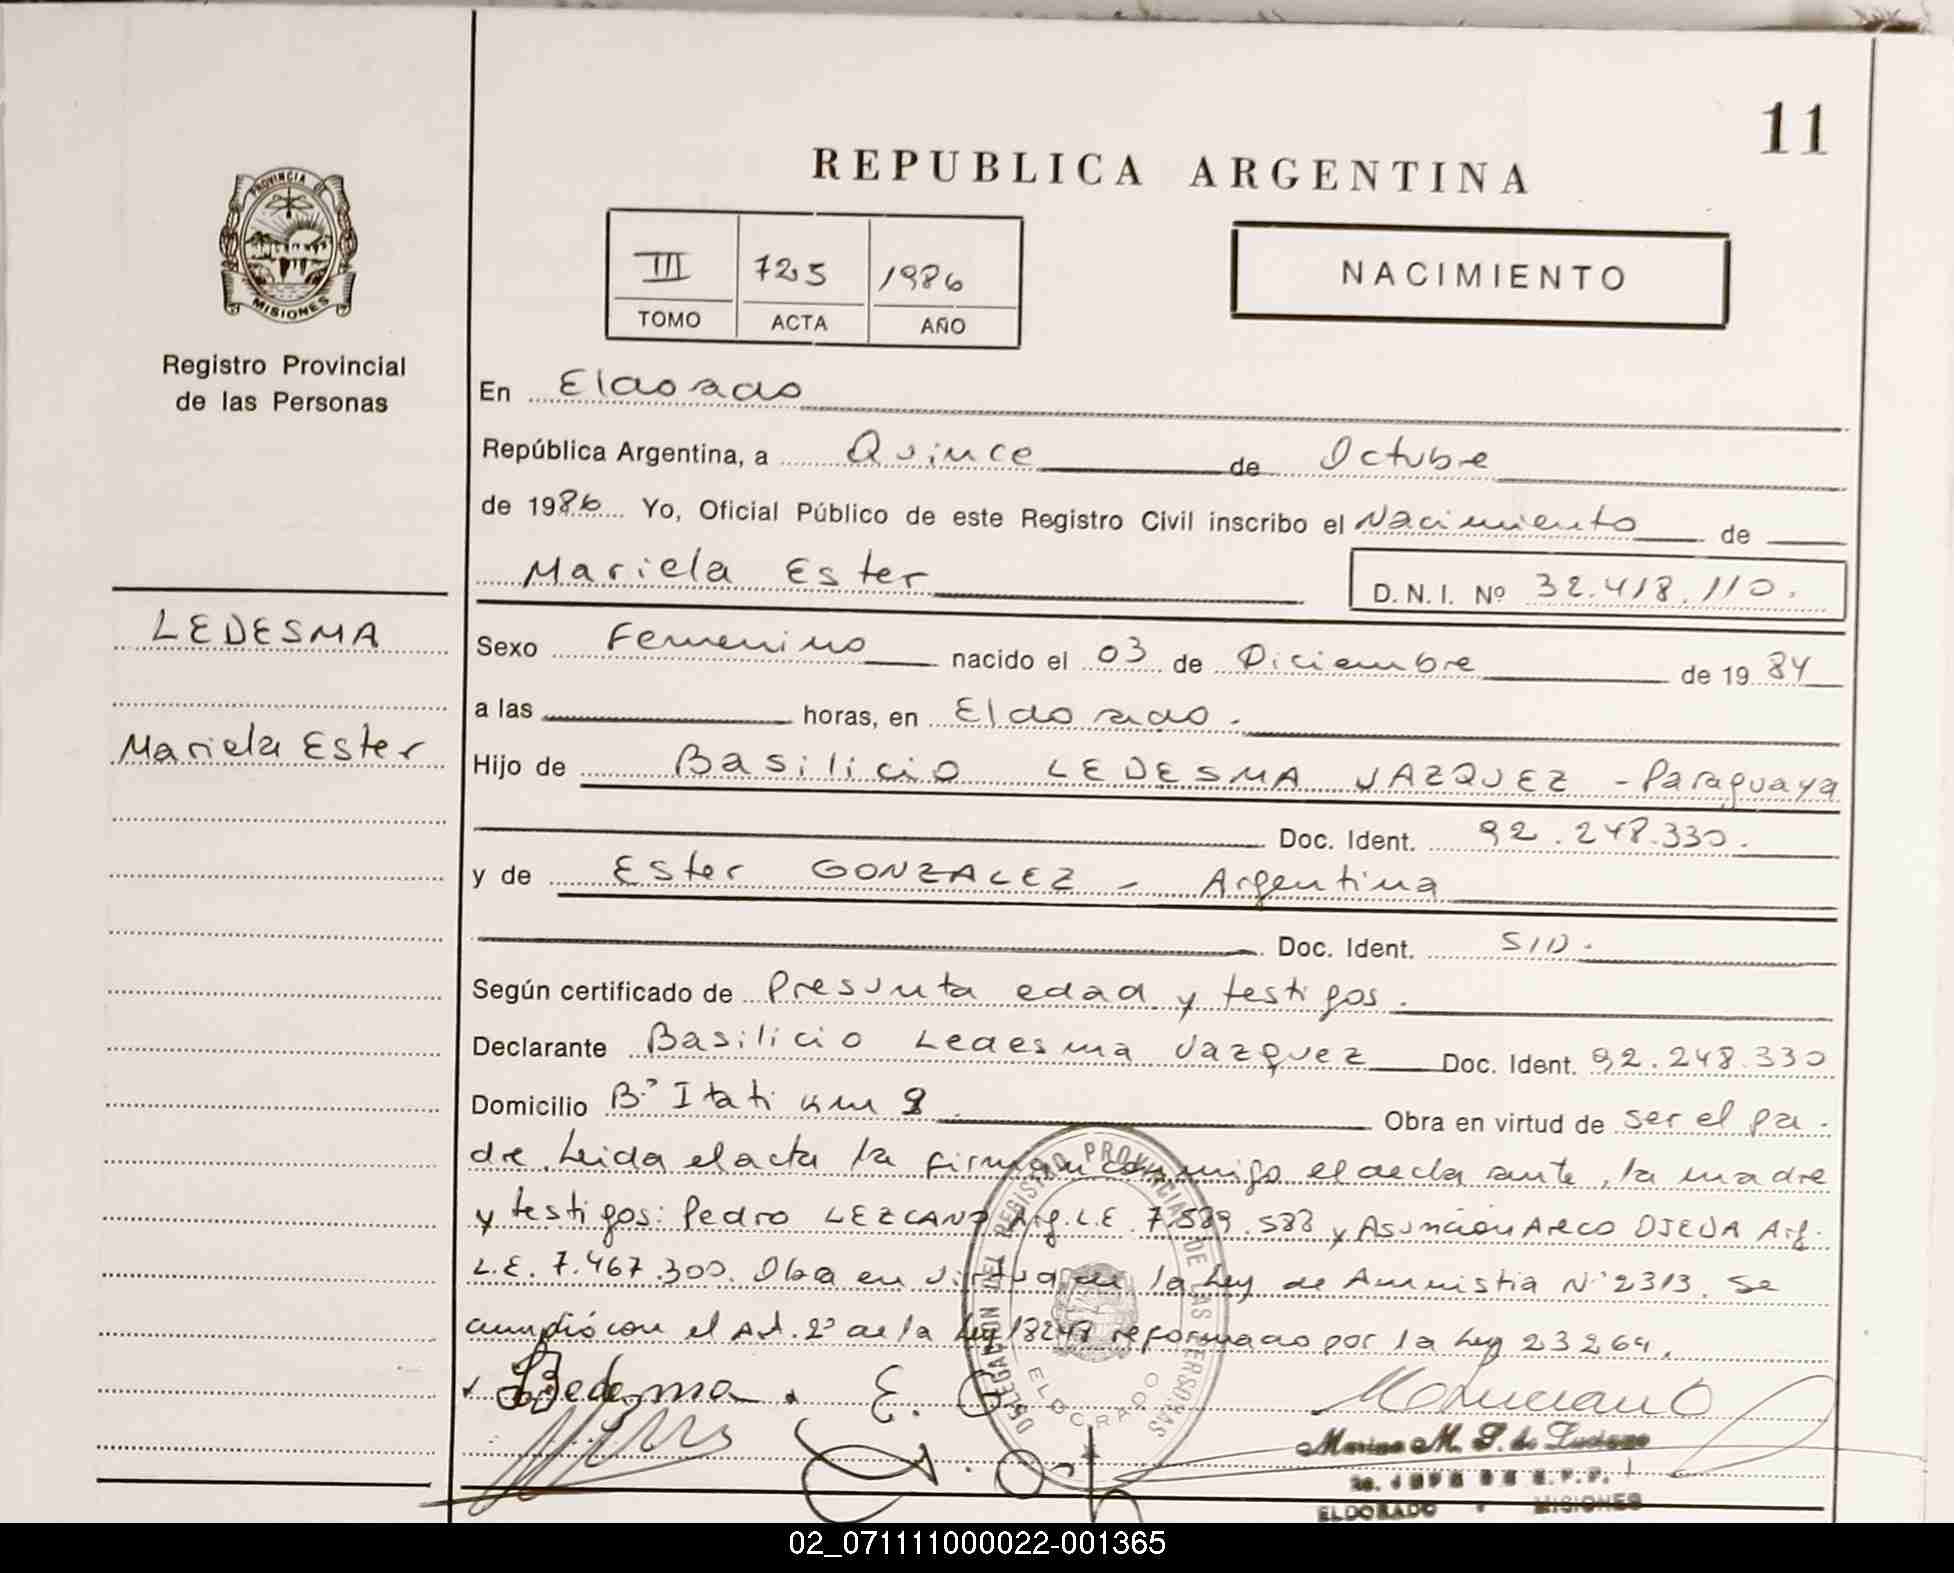 11
REPUBLICA ARGENTINA
PROVINCIA DE
MISIONES
Registro Provincial
de las Personas
III 725 1986
TOMO ACTA AÑO
NACIMIENTO
En Eldorado
República Argentina, a Quince de Octubre
de 1986 Yo, Oficial Público de este Registro Civil inscribo el Nacimiento de
Mariela Ester
D. N. I. Nº 32.418.110.
LEDESMA
Mariela Ester
Sexo Femenino nacido el 03 de Diciembre de 1984
a las horas, en Eldorado.
Hijo de Basilicio LEDESMA VAZQUEZ - Paraguaya
Doc. Ident. 92.248.330.
y de Ester GONZALEZ - Argentina
Doc. Ident. S/D.
Según certificado de Presunta edad y testigos.
Declarante Basilicio Ledesma Vazquez Doc. Ident. 92.248.330
Domicilio B.º Itati km 9 Obra en virtud de ser el pa-
dre. Leida el acta la firman conmigo el declarante, la madre
y testigos: Pedro LEZCANO Arg. L.E. 7.589.588 y Asuncion Areco OJEDA Arg.
L.E. 7.467.300. Obra en virtud de la Ley de Amnistia Nº 2313. Se
cumplió con el Art. 2º de la Ley 18248 reformado por la Ley 23264.
DELEGACION DEL REGISTRO PROVINCIAL DE LAS PERSONAS
ELDORADO
Ledesma E. G
Marina M. de Luciano
ELDORADO - MISIONES
02_071111000022-001365